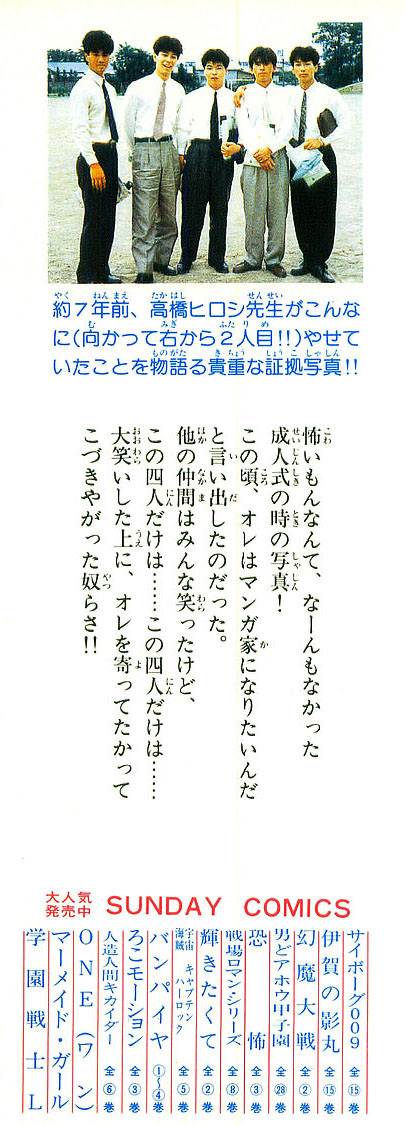 約7年前、高橋ヒロシ先生がこんな
に(向かって右から2人目!!)やせて
いたことを物語る貴重な証拠写真!!
怖いもんなんて、なーんもなかった
成人式の時の写真!
この頃、オレはマンガ家になりたいんだ
と言い出したのだった。
他の仲間はみんな笑ったけど、
この四人だけは……この四人だけは……
大笑いした上に、オレを寄ってたかって
こづきやがった奴らさ!!
大人気
発売中
SUNDAY COMICS
サイボーグ009 全⑮巻
伊賀の影丸 全⑮巻
幻魔大戦 全②巻
男どアホウ甲子園 全㉘巻
恐怖 全③巻
戦場ロマン・シリーズ 全⑧巻
輝きたくて 全②巻
宇宙海賊キャプテンハーロック 全⑤巻
バンパイヤ ①〜④巻
ろこモーション 全③巻
人造人間キカイダー 全⑥巻
ONE(ワン)
マーメイド・ガール
学園戦士L